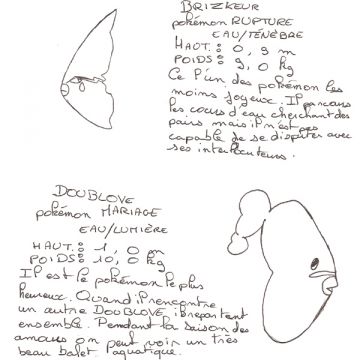 BRIZKEUR
pokémon RUPTURE
EAU/TÉNÈBRE
HAUT. : 0,9 m
POIDS : 9,0 kg
Ce l'un des pokémon les
moins joyeux. Il parcours
les cours d'eau cherchant des
pairs mais il n'est pas
capable de se disputer avec
ses interlocuteurs.
DOUBLOVE
pokémon MARIAGE
EAU/LUMIÈRE
HAUT. : 1,0 m
POIDS : 10,0 kg
Il est le pokémon le plus
heureux. Quand il rencontre
un autre DOUBLOVE, ils repartent
ensemble. Pendant la saison des
amours on peut voir un très
beau balet aquatique.